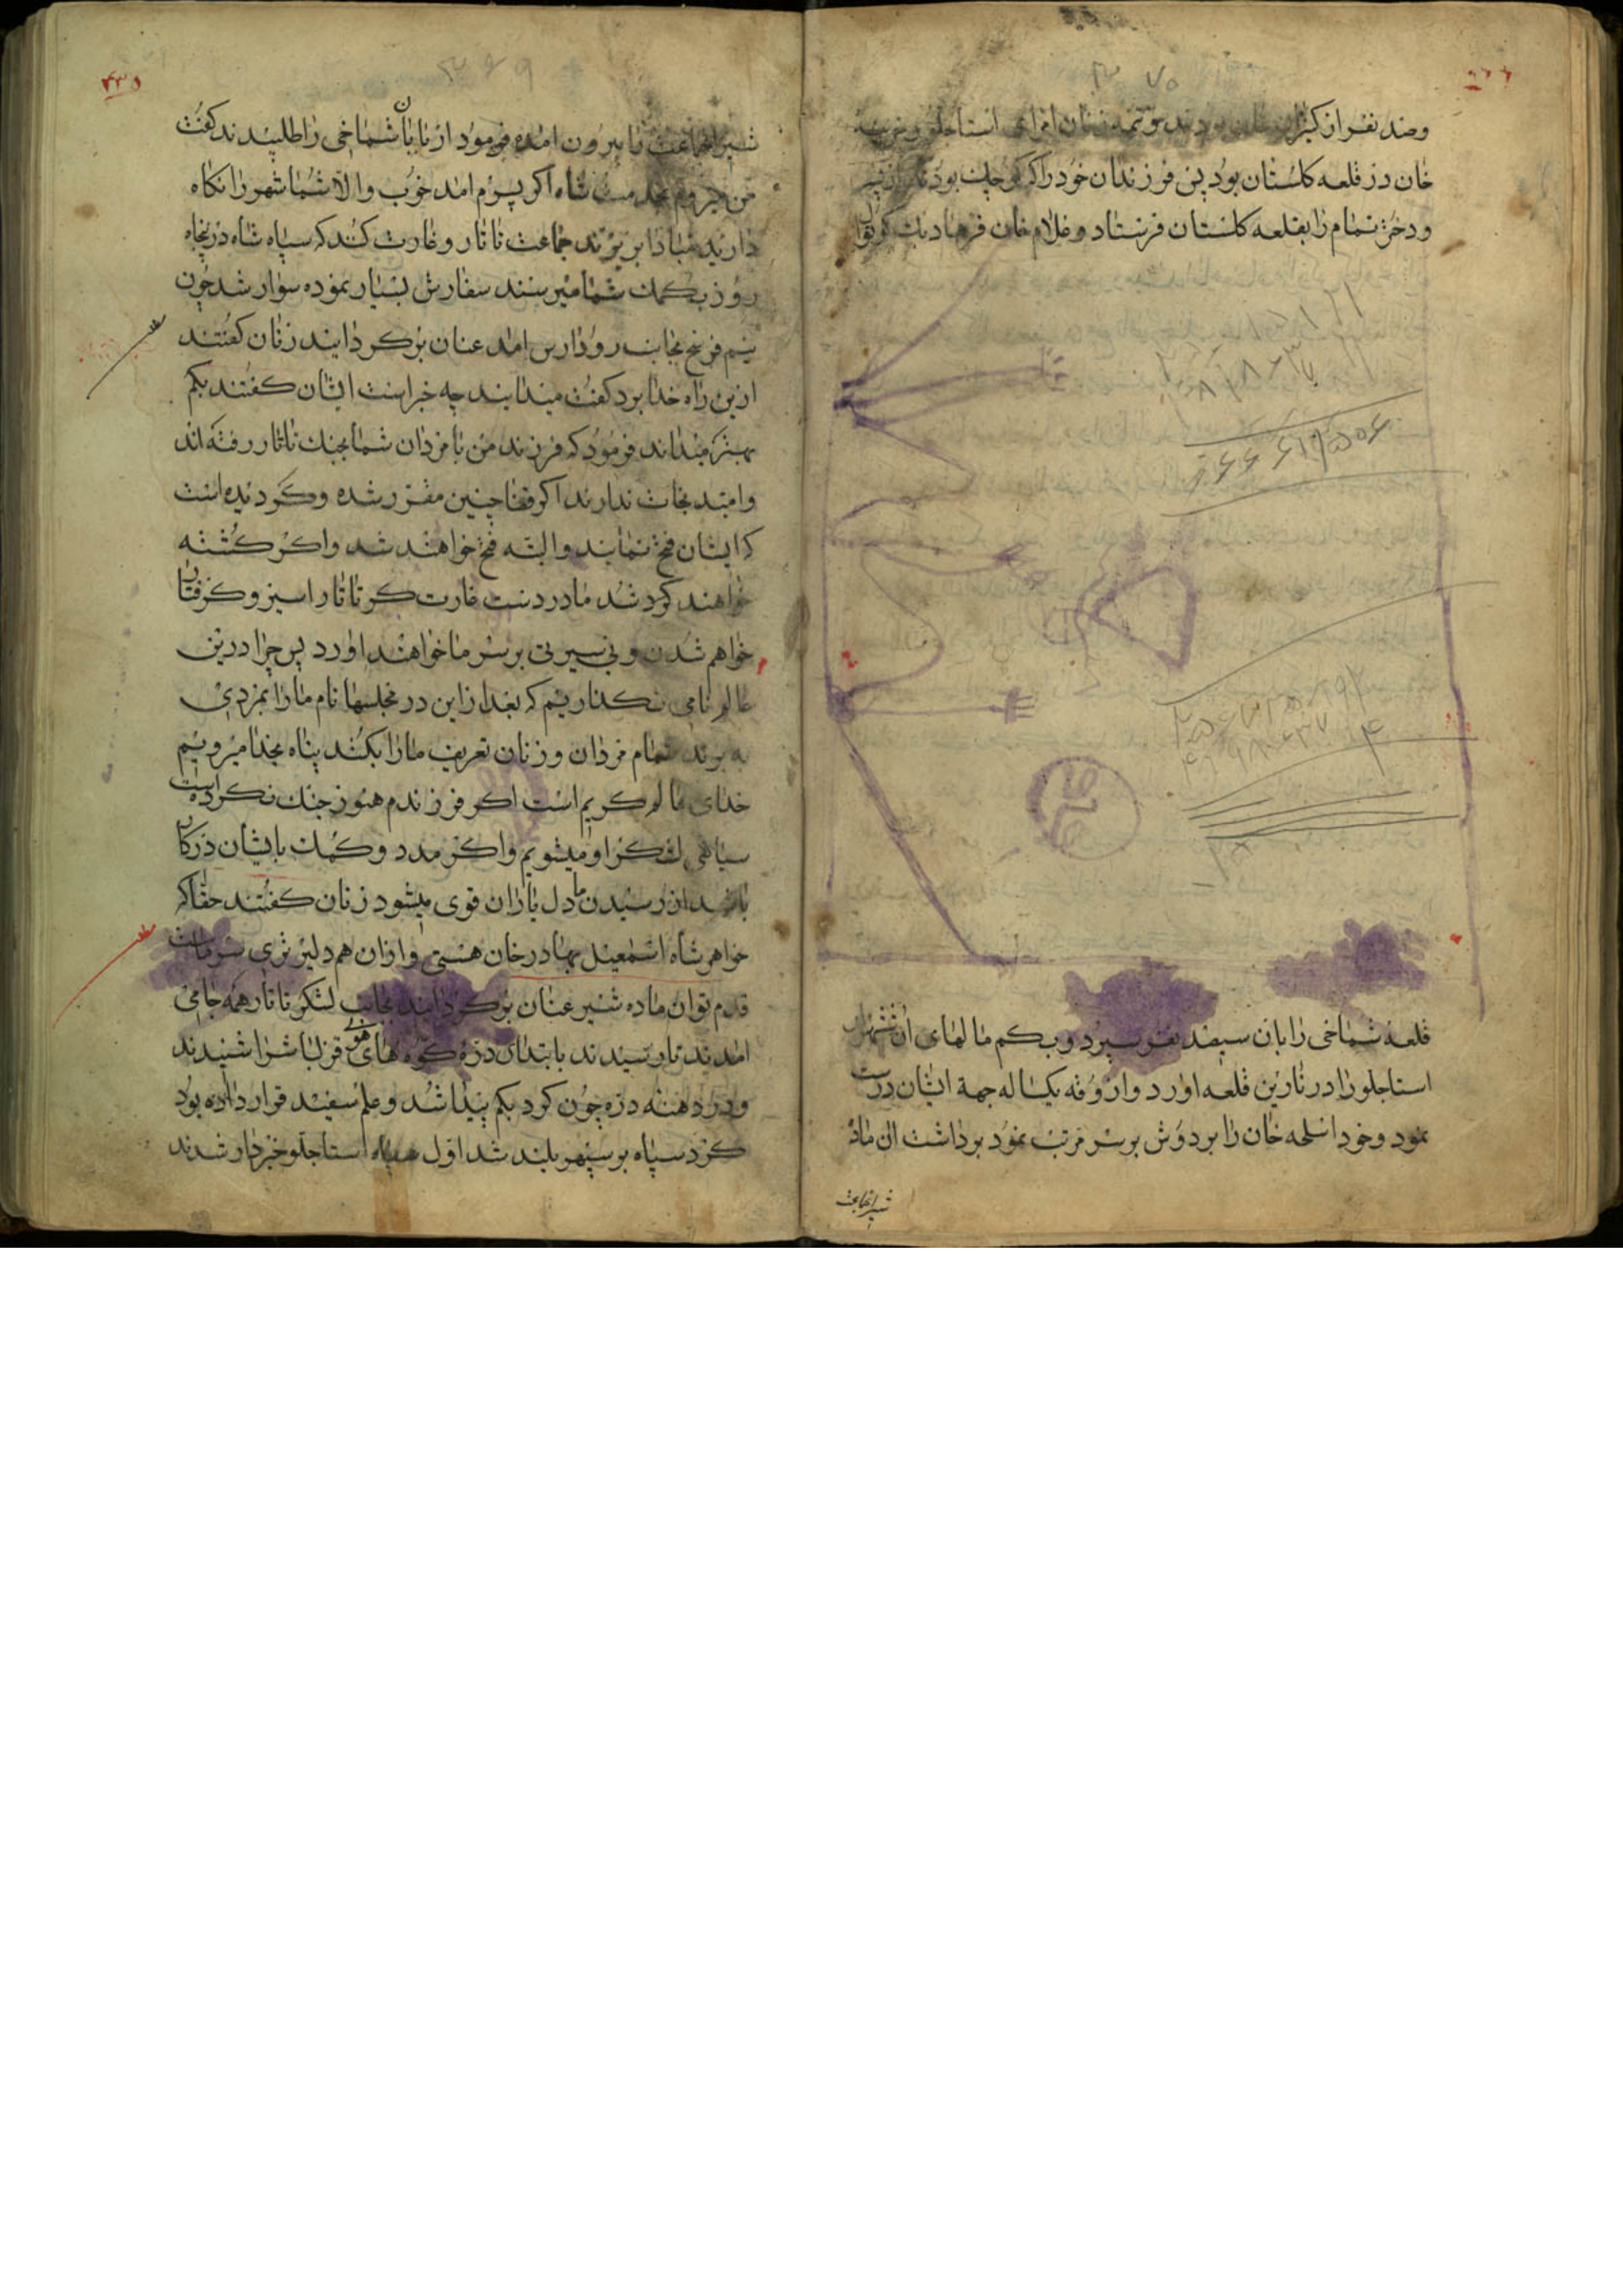 وصد نفر از کنیزان خان بودند و تتمه زنان امرای استاجلو و حرمـ
خان در قلعه کلستان بود پس فرزندان خود را که کوچک بودند از پسر
و دختر تمام را بقلعه کلستان فرستاد و غلام خان فرهاد بیک کوتوال
قلعه شماخی را بان سیصد نفر سپرد و بیکم مالهای آن ششهزار
استاجلو را در نارین قلعه اورد و ازوقه یکساله جهة ایشان درست
نمود و خود اسلحه خان را بر دوش بر سر مرتب نمود برداشت ان ماده
شیر انجاعت
۴۳۵
شیر انجاعت تا بیرون امده فرمود از نا بابان شماخی را طلبیدند کفت
من میروم بخدمت شاه اکر پسرم امد خوب والا شما شهر را نکاه
دارید مبادا بریزند جماعت تاتار و غارت کنند که سپاه شاه در پنجاه
روز بکمک شما میرسند سفارش بسیار نموده سوار شد چون
نیم فرسخ بجانب رود ارس امد عنان برکردانیند زنان کفتند
ازین راه خدا برد کفت میدانید چه خبر است ایشان کفتند بکم
بهتر میداند فرمود که فرزند من با مردان شما بجنک تاتار رفته اند
و امید نجات ندارند اکر قضا چنین مقرر شده و کردیده است
که ایشان فتح نمایند و البته فتح خواهند شد و اکر کشته
خواهند کرد شد ما در دست غارت کر تاتار اسیر و کرفتار
خواهم شدن و بی سیرتی بر سر ما خواهند اورد پس چرا درین
عالم نامی نکذاریم که بعد از این در مجلسها نام ما را بمردی
به برند تمام مردان و زنان تعریف ما را بکنند پناه بخدا میرویم
خدای عالم کریم است اکر فرزندم هنوز جنک نکرده است
سیاهی لشکر او میشویم و اکر مدد و کمک بایشان درکار
باشد از رسیدن ما دل یاران قوی میشود زنان کفتند حقا که
خواهر شاه اسمعیل بهادر خان هستی و ازان هم دلیر تری سر ماست
قدم توان ماده شیر عنان برکردانید بجانب لشکر تاتار همه جا می
امدند تا رسیدند بابتدای دره کوه های هوی قزلباش را شنیدند
و در دهنه دره چون کرد بکم پیدا شد و علم سفید قرار داده بود
کرد سپاه بر سپهر بلند شد اول سپاه استاجلو خبردار شدند